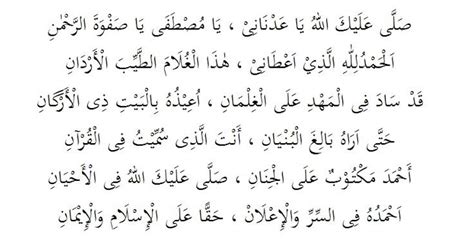 صَلَّى عَلَيْكَ اللهُ يَا عَدْنَانِىْ ، يَا مُصْطَفَى يَا صَفْوَةَ الرَّحْمٰنِ
اَلْحَمْدُلِلّٰهِ الَّذِيْ اَعْطَانِىْ ، هٰذَا الْغُلَامَ الطَّيِّبَ الْأَرْدَانِ
قَدْ سَادَ فِى الْمَهْدِ عَلَى الْغِلْمَانِ ، اُعِيْذُهُ بِالْبَيْتِ ذِى الْأَرْكَانِ
حَتَّى اَرَاهُ بَالِغَ الْبُنْيَانِ ، أَنْتَ الَّذِى سُمِّيْتَ فِى الْقُرْآنِ
أَحْمَدَ مَكْتُوْبٌ عَلَى الْجِنَانِ ، صَلَّى عَلَيْكَ اللهُ فِى الْأَحْيَانِ
اَحْمَدُهُ فِى السِّرِّ وَالْإِعْلَانِ ، حَقًّا عَلَى الْإِسْلَامِ وَالْإِيْمَانِ